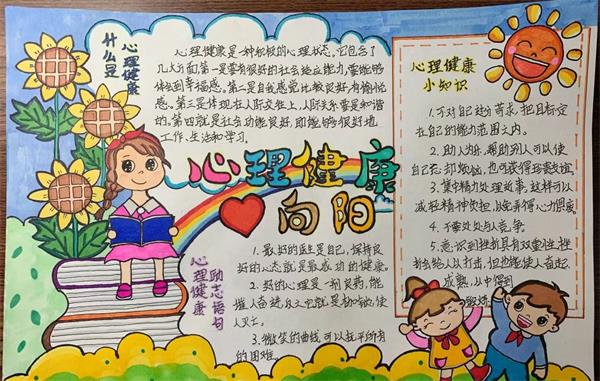 什么是
心理健康
心理健康是一种积极的心理状态。它包含了
几大方面,第一是要有很好的社会适应能力,要能够
体贴到幸福感。第二是自我感觉比较良好,有愉悦
感。第三是体现在人际交往上,人际关系要是和谐
的。第四就是社会功能良好,即能够很好地
工作、生活和学习。
心理健康
向阳
心理健康
励志语句
1. 最好的医生是自己,保持良
好的心态就是最成功的健康。
2. 好的心理是一剂良药,能
催人奋进,反之它就是砒霜,使
人灭亡。
3. 微笑的曲线可以抚平所有
的困难
心理健康
小知识
1. 不对自己过分苛求,把目标定
在自己的能力范围之内。
2. 助人为乐,帮助别人可以使
自己忘却烦恼,也可获得珍贵友谊
3. 集中精力处理故事,这样可以
减轻精神负担,以免弄得心力俱疲。
4. 不要处处与人竞争
5. 意识到挫折具有双重性,挫
折会给人以打击,但也能使人奋起、
成熟,从中得到
锻炼